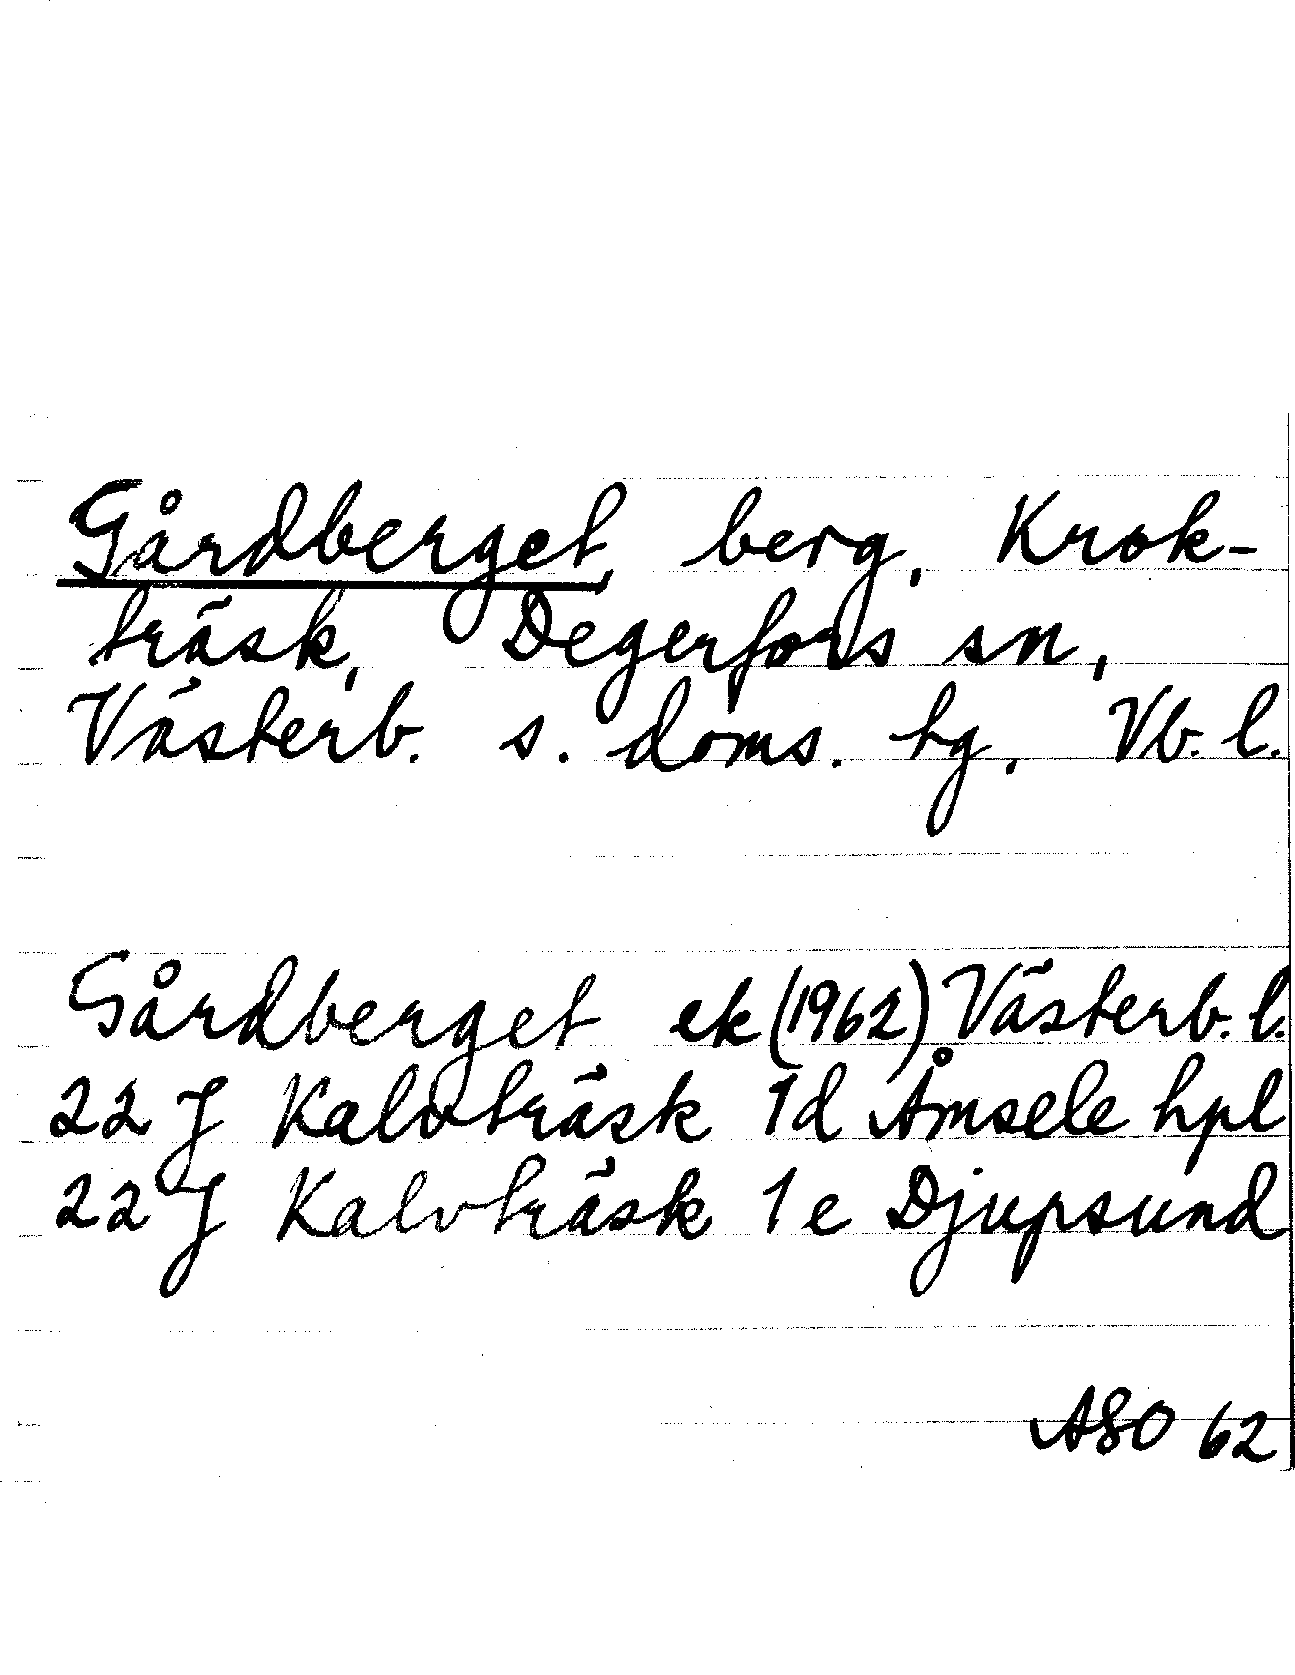 Gårdberget, berg, Krok-
träsk, Degerfors sn,
Västerb. s. doms. tg, Vb. l.
Gårdberget ek (1962) Västerb. l.
22 J Kalvträsk 1d Åmsele hpl
22 J Kalvträsk 1e Djupsund
ASO 62